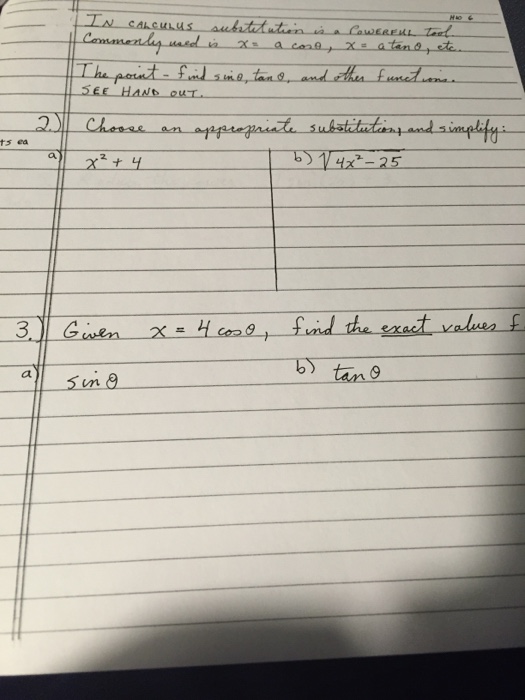 IN CALCULUS substitution is a POWERFUL Tool.
Commonly used is x = a cosθ, x = a tanθ, etc.
The point - find sinθ, tanθ, and other functions.
SEE HAND OUT.
2.) Choose an appropriate substitution, and simplify:
ts ea
a) x² + 4
b) √4x²-25
3.) Given x = 4 cosθ, find the exact values f
a) sinθ
b) tanθ